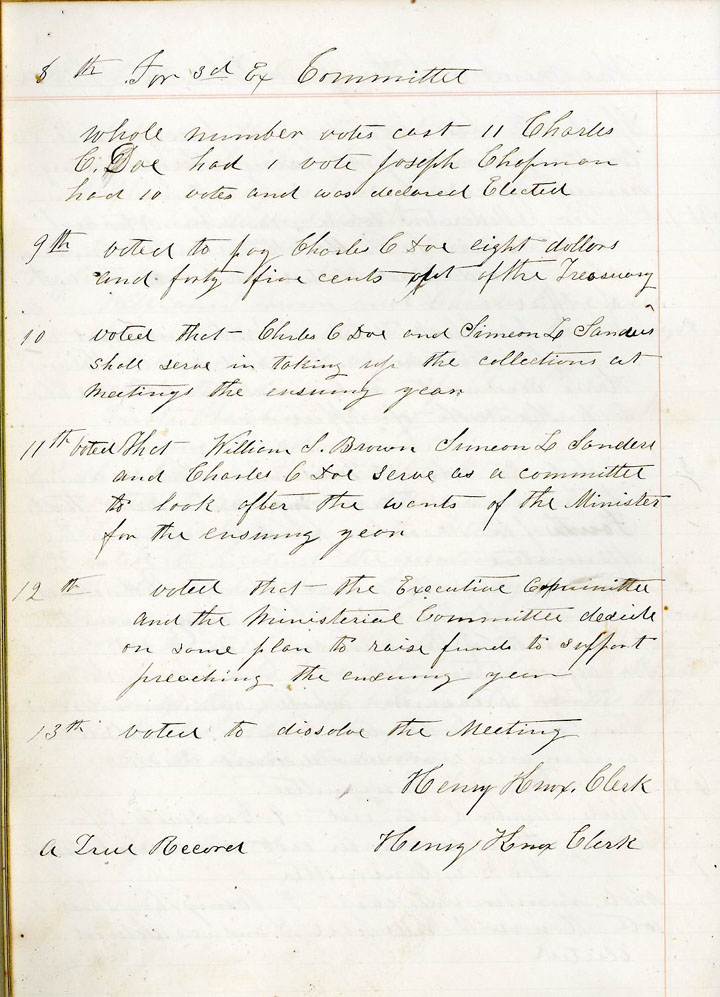 8 th For 3d Ex Committee
whole number votes cast 11 Charles
C. Doe had 1 vote Joseph Chapman
had 10 votes and was declared Elected
9th voted to pay Charles C Doe eight dollars
and forty five cents out of the Treasury
10 voted that Charles C Doe and Simeon L Sanders
shall serve in taking up the collections at
meetings the ensuing year
11th voted that William S. Brown Simeon L Sanders
and Charles C Doe serve as a committee
to look after the wants of the Minister
for the ensuing year
12 th voted that the Executive Committee
and the Ministerial Committee decide
on some plan to raise funds to support
preaching the ensuing year
13th voted to dissolve the Meeting
Henry Knox. Clerk
A True Record Henry Knox Clerk